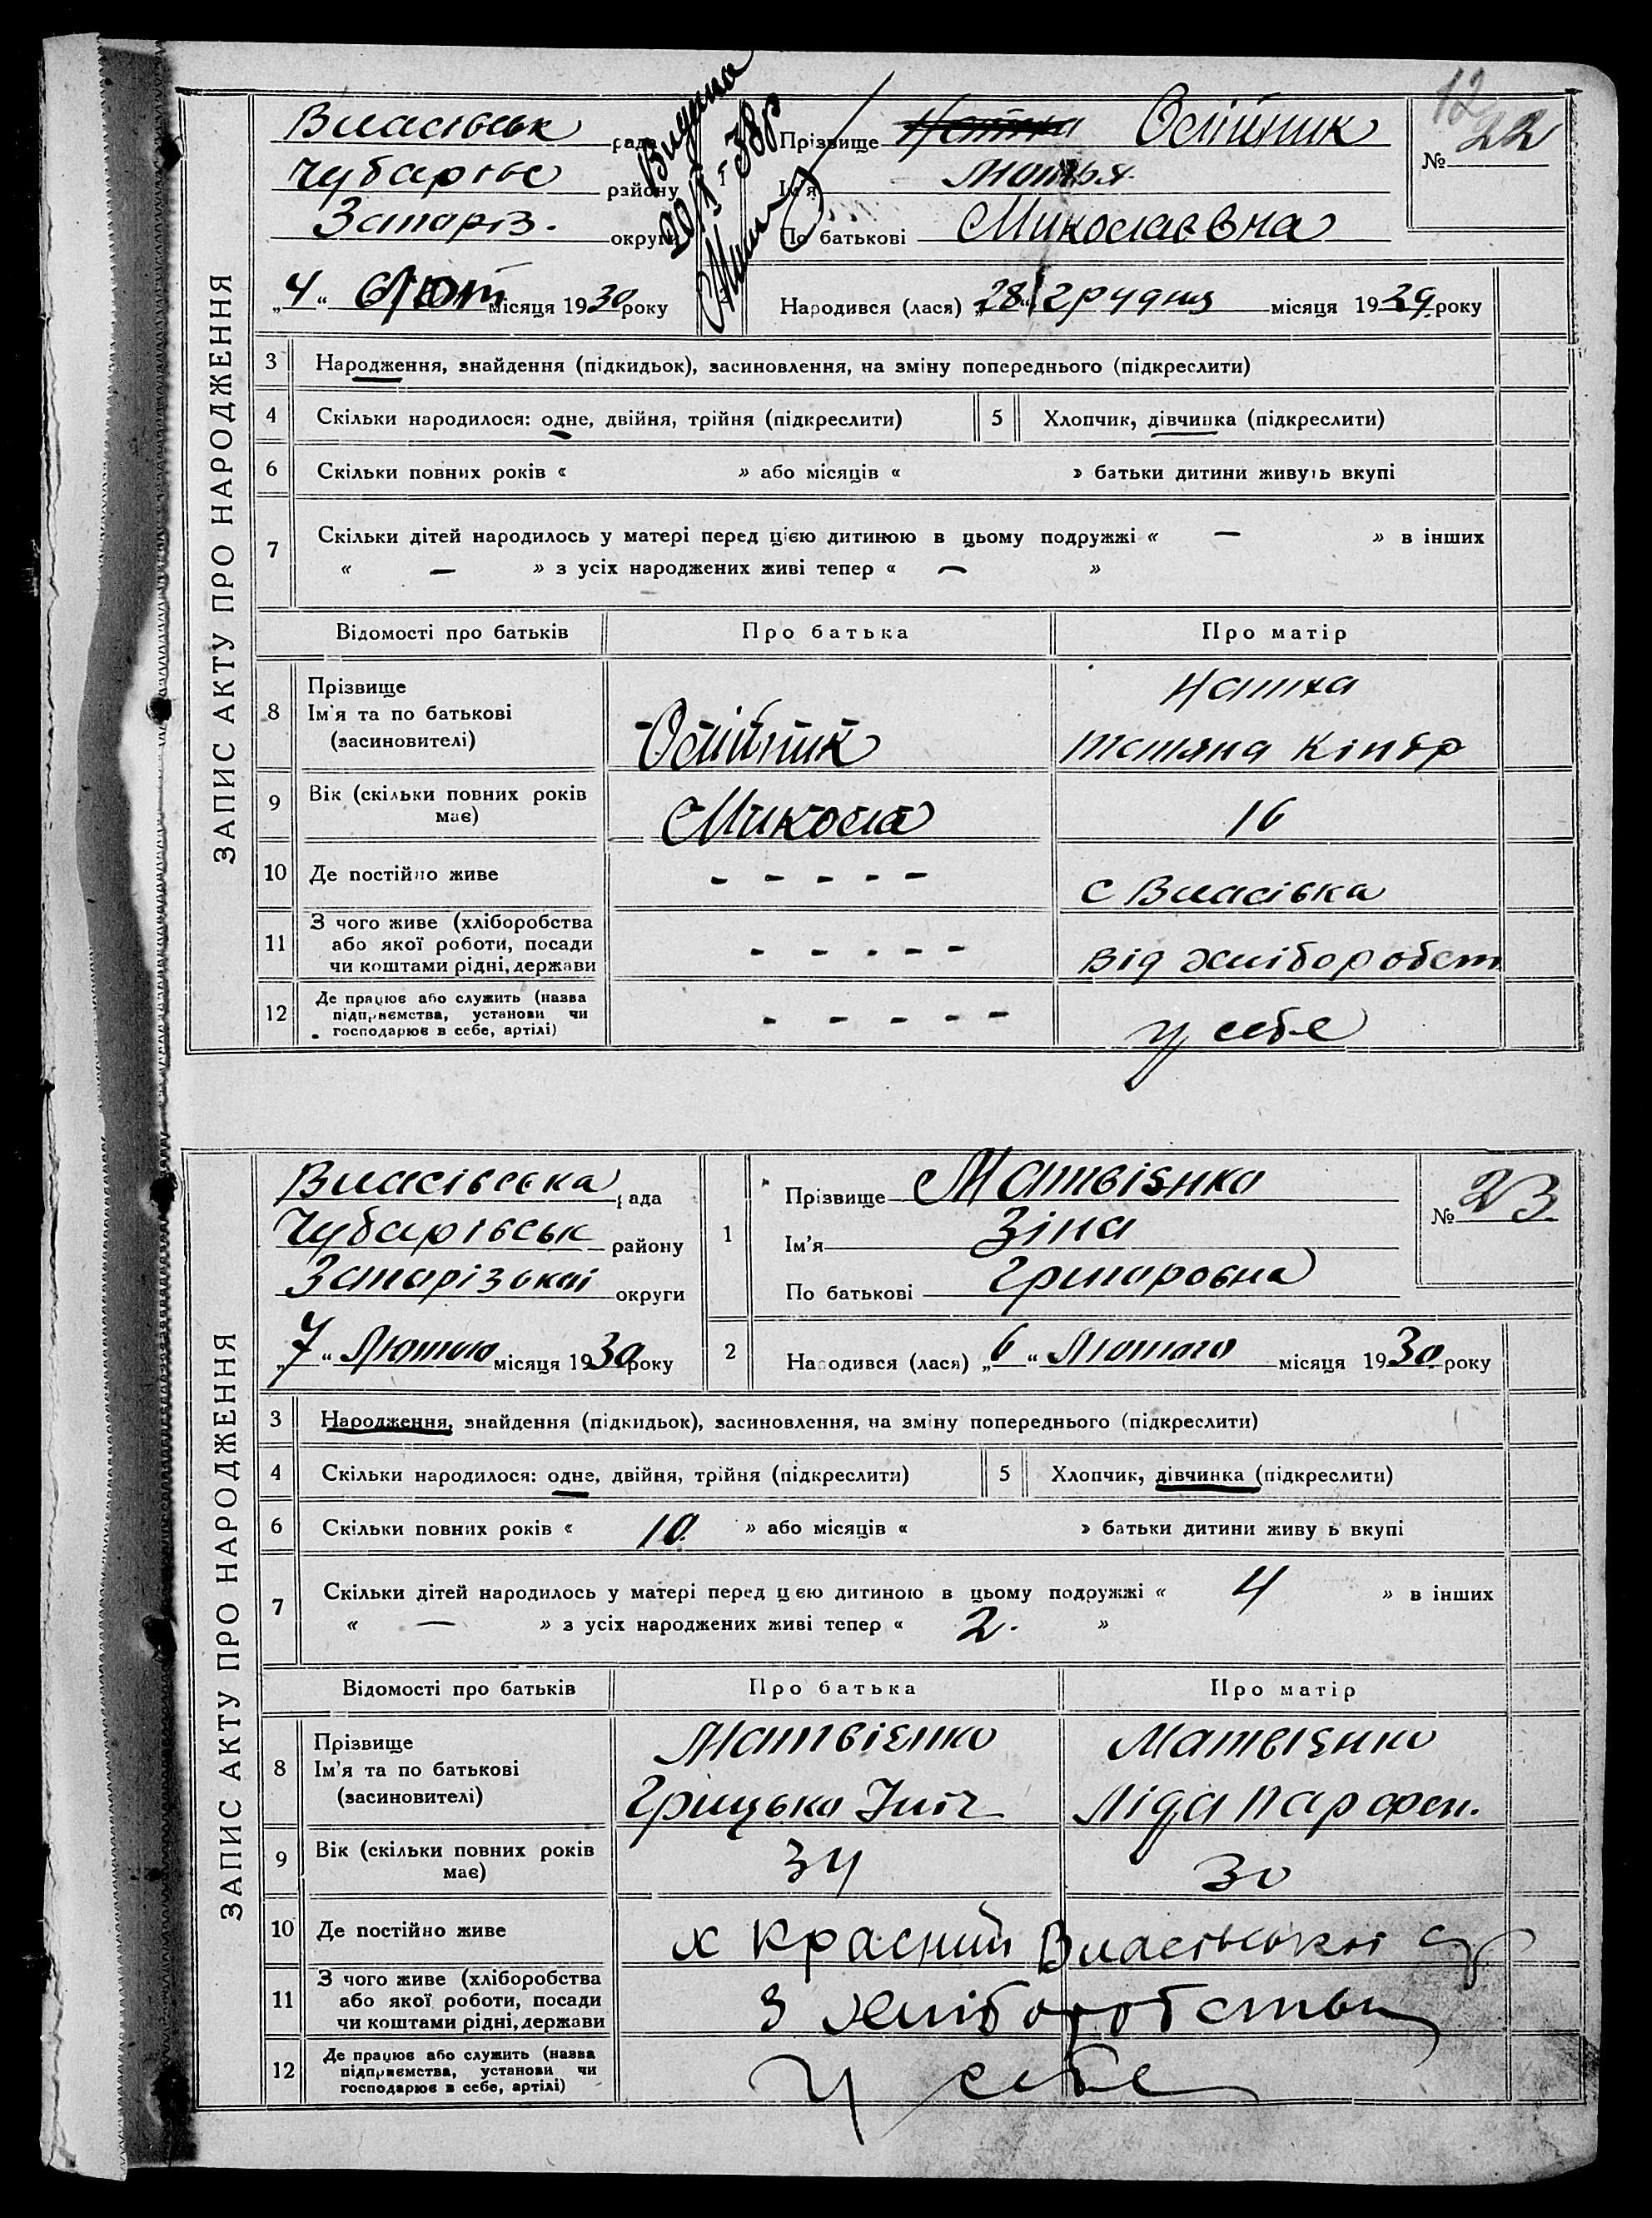 ЗАПИС АКТУ ПРО НАРОДЖЕННЯ
12
Власівськ рада
Чубарівс району
Запоріз. округи
"4" Лют місяця 1930 року
Видано
38р
Прізвище Олійник
Ім'я
По батькові Миколаєвна
№ 22
Народився (лася) "28" грудня місяця 1929 року
3 Народження, знайдення (підкидьок), засиновлення, на зміну попереднього (підкреслити)
4 Скільки народилося: одне, двійня, трійня (підкреслити) 5 Хлопчик, дівчинка (підкреслити)
6 Скільки повних років « » або місяців « » батьки дитини живуть вкупі
7 Скільки дітей народилось у матері перед цією дитиною в цьому подружжі « — » в інших
« — » з усіх народжених живі тепер « — »
Відомості про батьків Про батька Про матір
8 Прізвище
Ім'я та по батькові
(засиновителі)
Олійник
Татяна
9 Вік (скільки повних років
має)
Микола 16
10 Де постійно живе - - - - - с Власівка
11 З чого живе (хліборобства
або якої роботи, посади
чи коштами рідні, держави
- - - - - від хліборобст
12 Де працює або служить (назва
підприємства, установи чи
господарює в себе, артілі)
- - - - - у себе
ЗАПИС АКТУ ПРО НАРОДЖЕННЯ
Власівська рада
Чубарівськ району
Запорізької округи
"7" Лютого місяця 1930 року
1 Прізвище Матвієнко
Ім'я Зіна
По батькові Григоровна
№ 23
2 Народився (лася) "6" Лютого місяця 1930 року
3 Народження, знайдення (підкидьок), засиновлення, на зміну попереднього (підкреслити)
4 Скільки народилося: одне, двійня, трійня (підкреслити) 5 Хлопчик, дівчинка (підкреслити)
6 Скільки повних років « 10 » або місяців « » батьки дитини живу ь вкупі
7 Скільки дітей народилось у матері перед цією дитиною в цьому подружжі « 4 » в інших
« — » з усіх народжених живі тепер « 2. »
Відомості про батьків Про батька Про матір
8 Прізвище
Ім'я та по батькові
(засиновителі)
Матвієнко
Грицько Ілліч
Матвієнко
Ліда Парфен.
9 Вік (скільки повних років
має)
34 30
10 Де постійно живе х Красний Власівської с/р
11 З чого живе (хліборобства
або якої роботи, посади
чи коштами рідні, держави
З хліборобства
12 Де працює або служить (назва
підприємства, установи чи
господарює в себе, артілі)
У себе